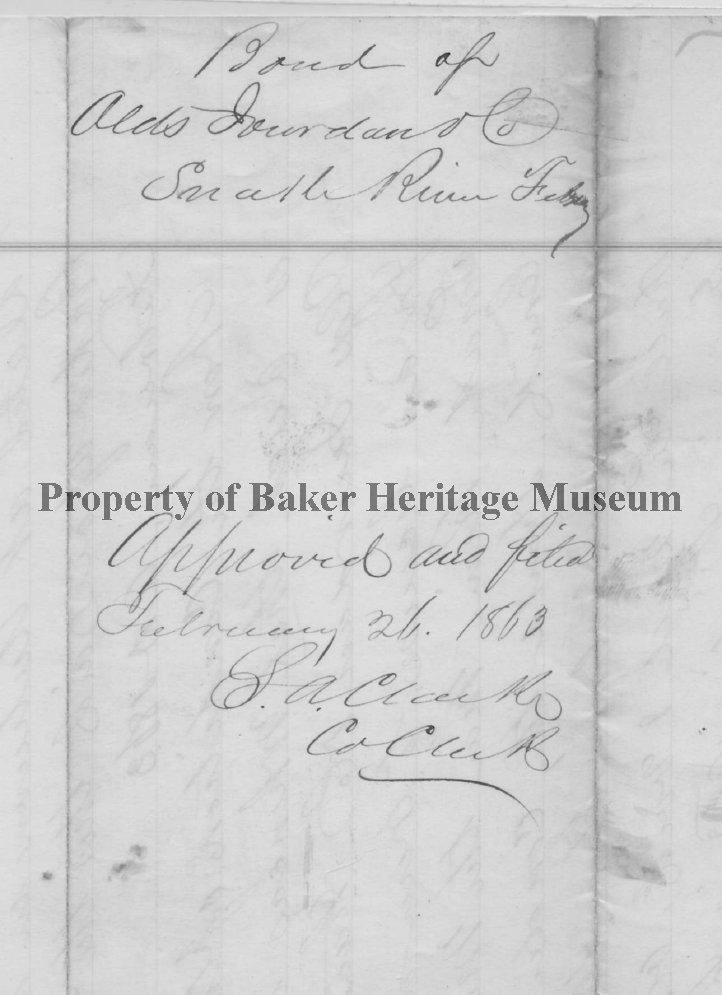 Bond of
Olds Jourdan & Co
Snake River Ferry
Property of Baker Heritage Museum
Approved and filed
February 26. 1863
S. A. Clarke
Co Clerk